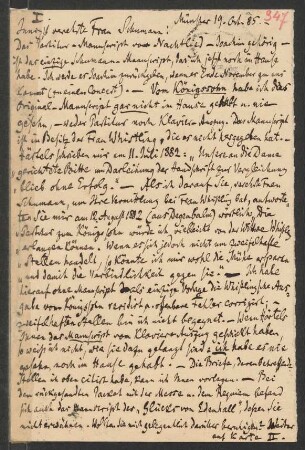 I.
Münster 19. Oct. 85. 347
Innigst verehrte Frau Schumann!
Das Partitur-Manuscript vom Nachtlied – Joachim gehörig –
ist das einzige Schumann-Manuscript, das ich jetzt noch im Hause
habe. Ich werde es Joachim zurückgeben, da er Ende November zu uns
kommt (zu einem Concert). – Vom Königssohn habe ich das
Original-Manuscript gar nicht im Hause gehabt u. nie
gesehn, – weder Partitur noch Klavier-Auszug. Das Manuscript
ist im Besitz der Frau Whistling, die es nicht hergegeben hat.
Härtels schrieben mir am 11. Juli 1882: „Unsere an die Dame
gerichtete Bitte um Darleihung der Handschrift zur Vergleichung
blieb ohne Erfolg." – Als ich darauf Sie, verehrte Frau
Schumann, um Ihre Vermittlung bei Frau Whistling bat, antworte-
ten Sie mir am 12. August 1882 (aus Obersalzberg) wörtlich: „Die
Partitur zum Königssohn würde ich vielleicht von der Wittwe Whistling
erlangen können. Wenn es sich jedoch nicht um zweifelhafte
Stellen handelt, so könnte ich mir wohl die Mühe ersparen
und damit die Verbindlichkeit gegen sie" – Ich habe
hierauf ohne Manuscript die als einzige Vorlage die Whistling'sche Aus-
gabe vom Königssohn revidirt u. offenbare Fehler corrigirt;
zweifelhaften Stellen bin ich nicht begegnet. – Wenn Härtels
Ihnen das Manuscript vom Klavier-Auszug geschickt haben,
so weiß ich nicht, wie sie dazu gelangt sind u. ich habe es nie
gesehn, noch im Hause gehabt. – Die Briefe, deren betreffende
Stellen ich oben citirt habe, kann ich Ihnen vorlegen. – Bei
dem rückgesandten Packet mit der Messe u. dem Requiem befand
sich auch das Manuscript des „Glücks von Edenhall", dessen Sie
nicht erwähnen. Wollen Sie mich gelegentlich darüber beruhigen? Weiter
auf Karte II.